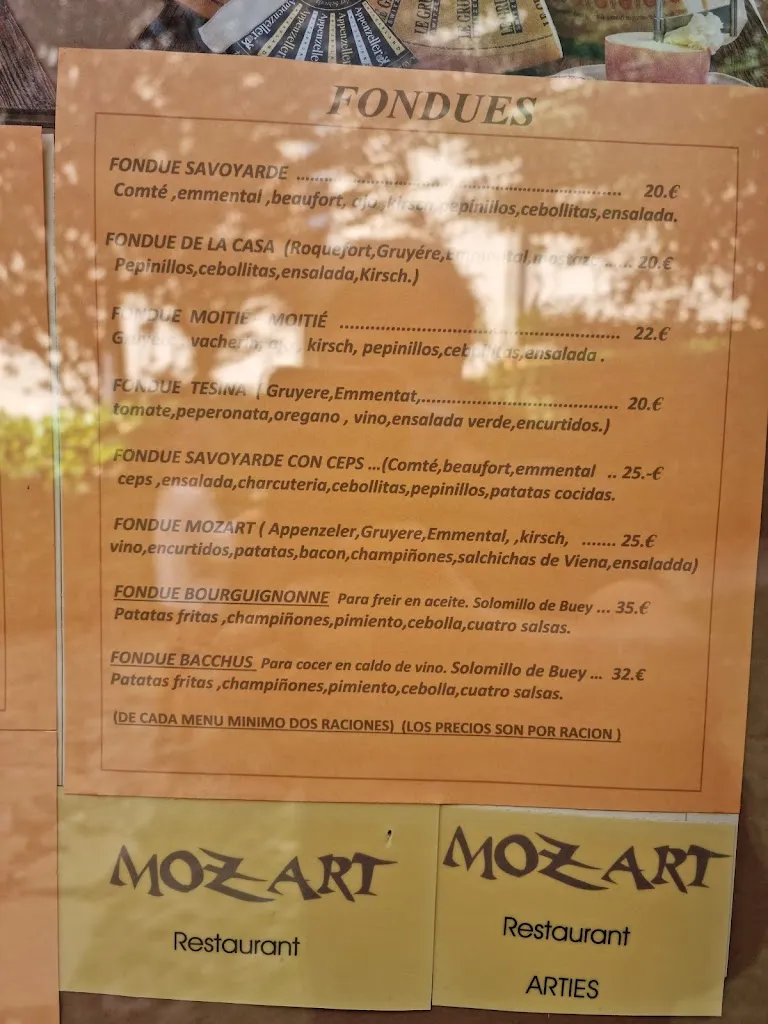 Appenzeller
Appenzeller
Appenzeller
LE GRU
FONDUES
FONDUE SAVOYARDE ........ 20.€
Comté ,emmental ,beaufort, ajo ,kirsch, pepinillos,cebollitas,ensalada.
FONDUE DE LA CASA (Roquefort,Gruyére,Emmental,mostaza ..... 20.€
Pepinillos,cebollitas,ensalada,Kirsch.)
FONDUE MOITIE MOITIÉ ........ 22.€
vacherin, kirsch, pepinillos,cebollitas,ensalada .
FONDUE TESINA ( Gruyere,Emmentat,........ 20.€
tomate,peperonata,oregano , vino,ensalada verde,encurtidos.)
FONDUE SAVOYARDE CON CEPS ...(Comté,beaufort,emmental .. 25.-€
ceps ,ensalada,charcuteria,cebollitas,pepinillos,patatas cocidas.
FONDUE MOZART ( Appenzeler,Gruyere,Emmental, ,kirsch, ....... 25.€
vino,encurtidos,patatas,bacon,champiñones,salchichas de Viena,ensaladda)
FONDUE BOURGUIGNONNE Para freir en aceite. Solomillo de Buey ... 35.€
Patatas fritas ,champiñones,pimiento,cebolla,cuatro salsas.
FONDUE BACCHUS Para cocer en caldo de vino. Solomillo de Buey ... 32.€
Patatas fritas ,champiñones,pimiento,cebolla,cuatro salsas.
(DE CADA MENU MINIMO DOS RACIONES) (LOS PRECIOS SON POR RACION )
MOZART
Restaurant
MOZART
Restaurant
ARTIES